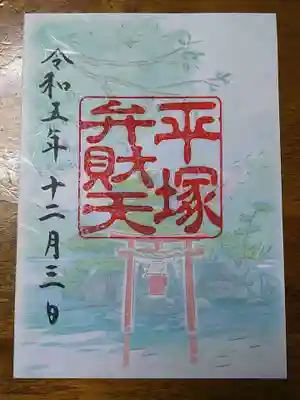 平塚
弁財天
令和五年 十二月三日